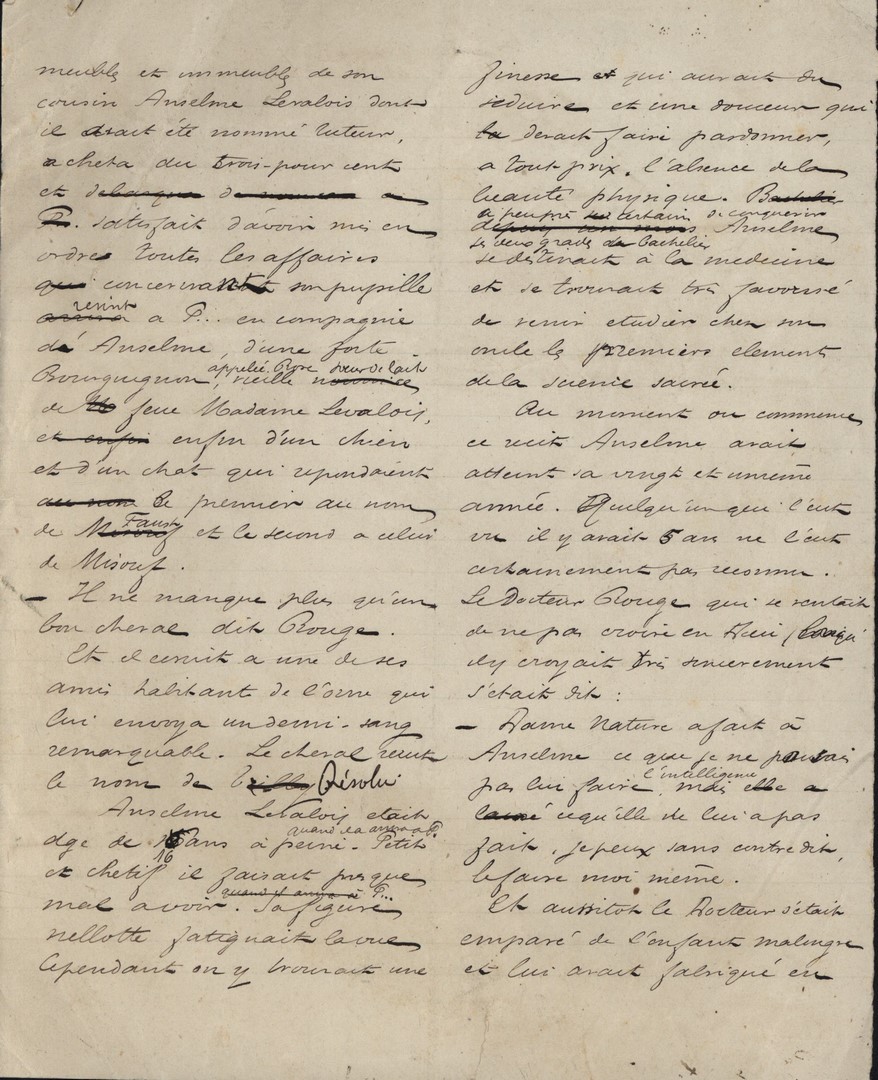 meubles et immeubles de son
cousin Anselme Levalois dont
il avait été nommé tuteur,
acheta du trois-pour cent
et debarqua de nouveau a
P. satisfait d'avoir mis en
ordre toutes les affaires
qui concernant son pupille
revint
arriva a P... en compagnie
de Anselme, d'une forte
appelée Rose sœur de lait
Bourguignon, vieille nourrice
de feue Madame Levalois,
et enfin enfin d'un chien
et d'un chat qui repondaient
au nom le premier au nom
Faust
de Misouf et le second a celui
de Misouf.
— Il ne manque plus qu'un
bon cheval dit Rouge.
Et il ecrivit a une de ses
amis habitant de l'orne qui
lui envoya un demi-sang
remarquable. Le cheval recut
le nom de Résolu.
Anselme Levalois etait
quand il arriva a P.
age de ans à peine. Petit
16
et chetif il faisait presque
quand il arriva à P...
mal a voir. Sa figure
vieillotte fatiguait la vue
Cependant on y trouvait une
finesse et qui aurait du
seduire et une douceur qui
la devait faire pardonner,
a tout prix, l'absence de la
beauté physique. Bachelier
a peu pres certain de conquerir
depuis un mois Anselme
ses deux grades de bachelier
se destinait à la medecine
et se trouvait très favorisé
de venir etudier chez son
oncle les premiers elements
de la science sacrée.
Au moment ou commence
ce recit Anselme avait
atteint sa vingt et unieme
année. Quelqu'un qui l'eut
vu il y avait 5 ans ne l'eut
certainement pas reconnu.
Le Docteur Rouge qui se vantait
de ne pas croire en Dieu
il y croyait très sincerement
s'était dit :
— Dame Nature a fait à
Anselme ce que je ne pouvais
l'intelligence
pas lui faire, mais elle a
laissé ce qu'elle ne lui a pas
fait, je peux sans contredit,
le faire moi même.
Et aussitot le Docteur s'était
emparé de l'enfant malingre
et lui avait fabriqué en